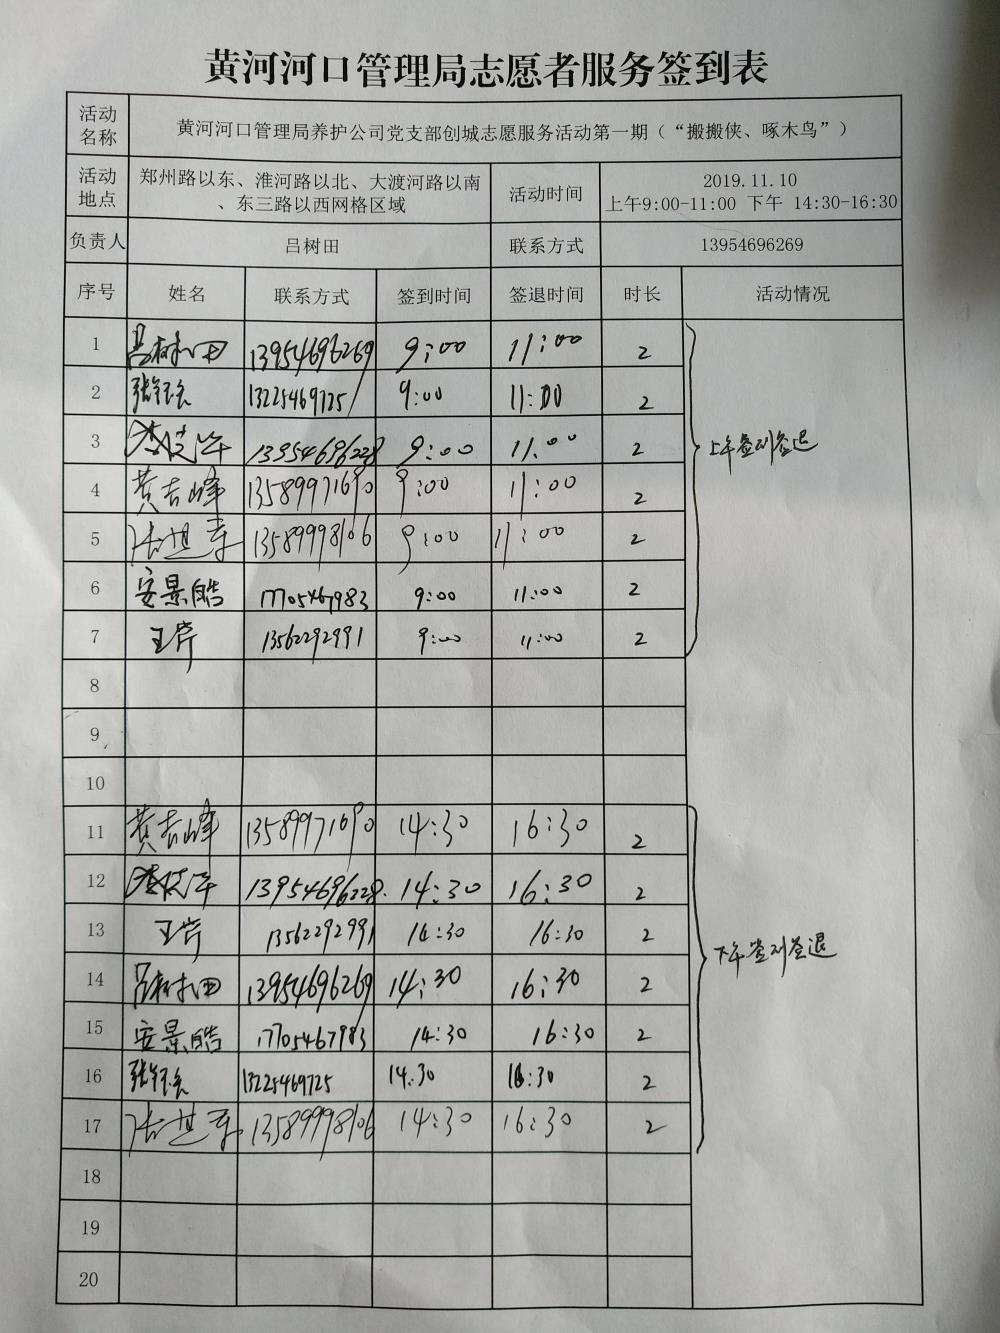 黄河河口管理局志愿者服务签到表
活动名称 黄河河口管理局养护公司党支部创城志愿服务活动第一期（“搬搬侠、啄木鸟”）
活动地点 郑州路以东、淮河路以北、大渡河路以南、东三路以西网格区域 活动时间 2019.11.10 上午9:00-11:00 下午 14:30-16:30
负责人 吕树田 联系方式 13954696269
序号 姓名 联系方式 签到时间 签退时间 时长 活动情况
1 吕树田 13954696269 9:00 11:00 2
2 13225469725 9:00 11:00 2
3 13954696228 9:00 11:00 2 上午签到签退
4 黄吉峰 13589971690 9:00 11:00 2
5 13589998106 9:00 11:00 2
6 安景皓 17705467983 9:00 11:00 2
7 王芹 13562292991 9:00 11:00 2
8
9
10
11 黄吉峰 13589971690 14:30 16:30 2
12 13954696228 14:30 16:30 2
13 王芹 13562292991 14:30 16:30 2 下午签到签退
14 吕树田 13954696269 14:30 16:30 2
15 安景皓 17705467983 14:30 16:30 2
16 13225469725 14:30 16:30 2
17 13589998106 14:30 16:30 2
18
19
20